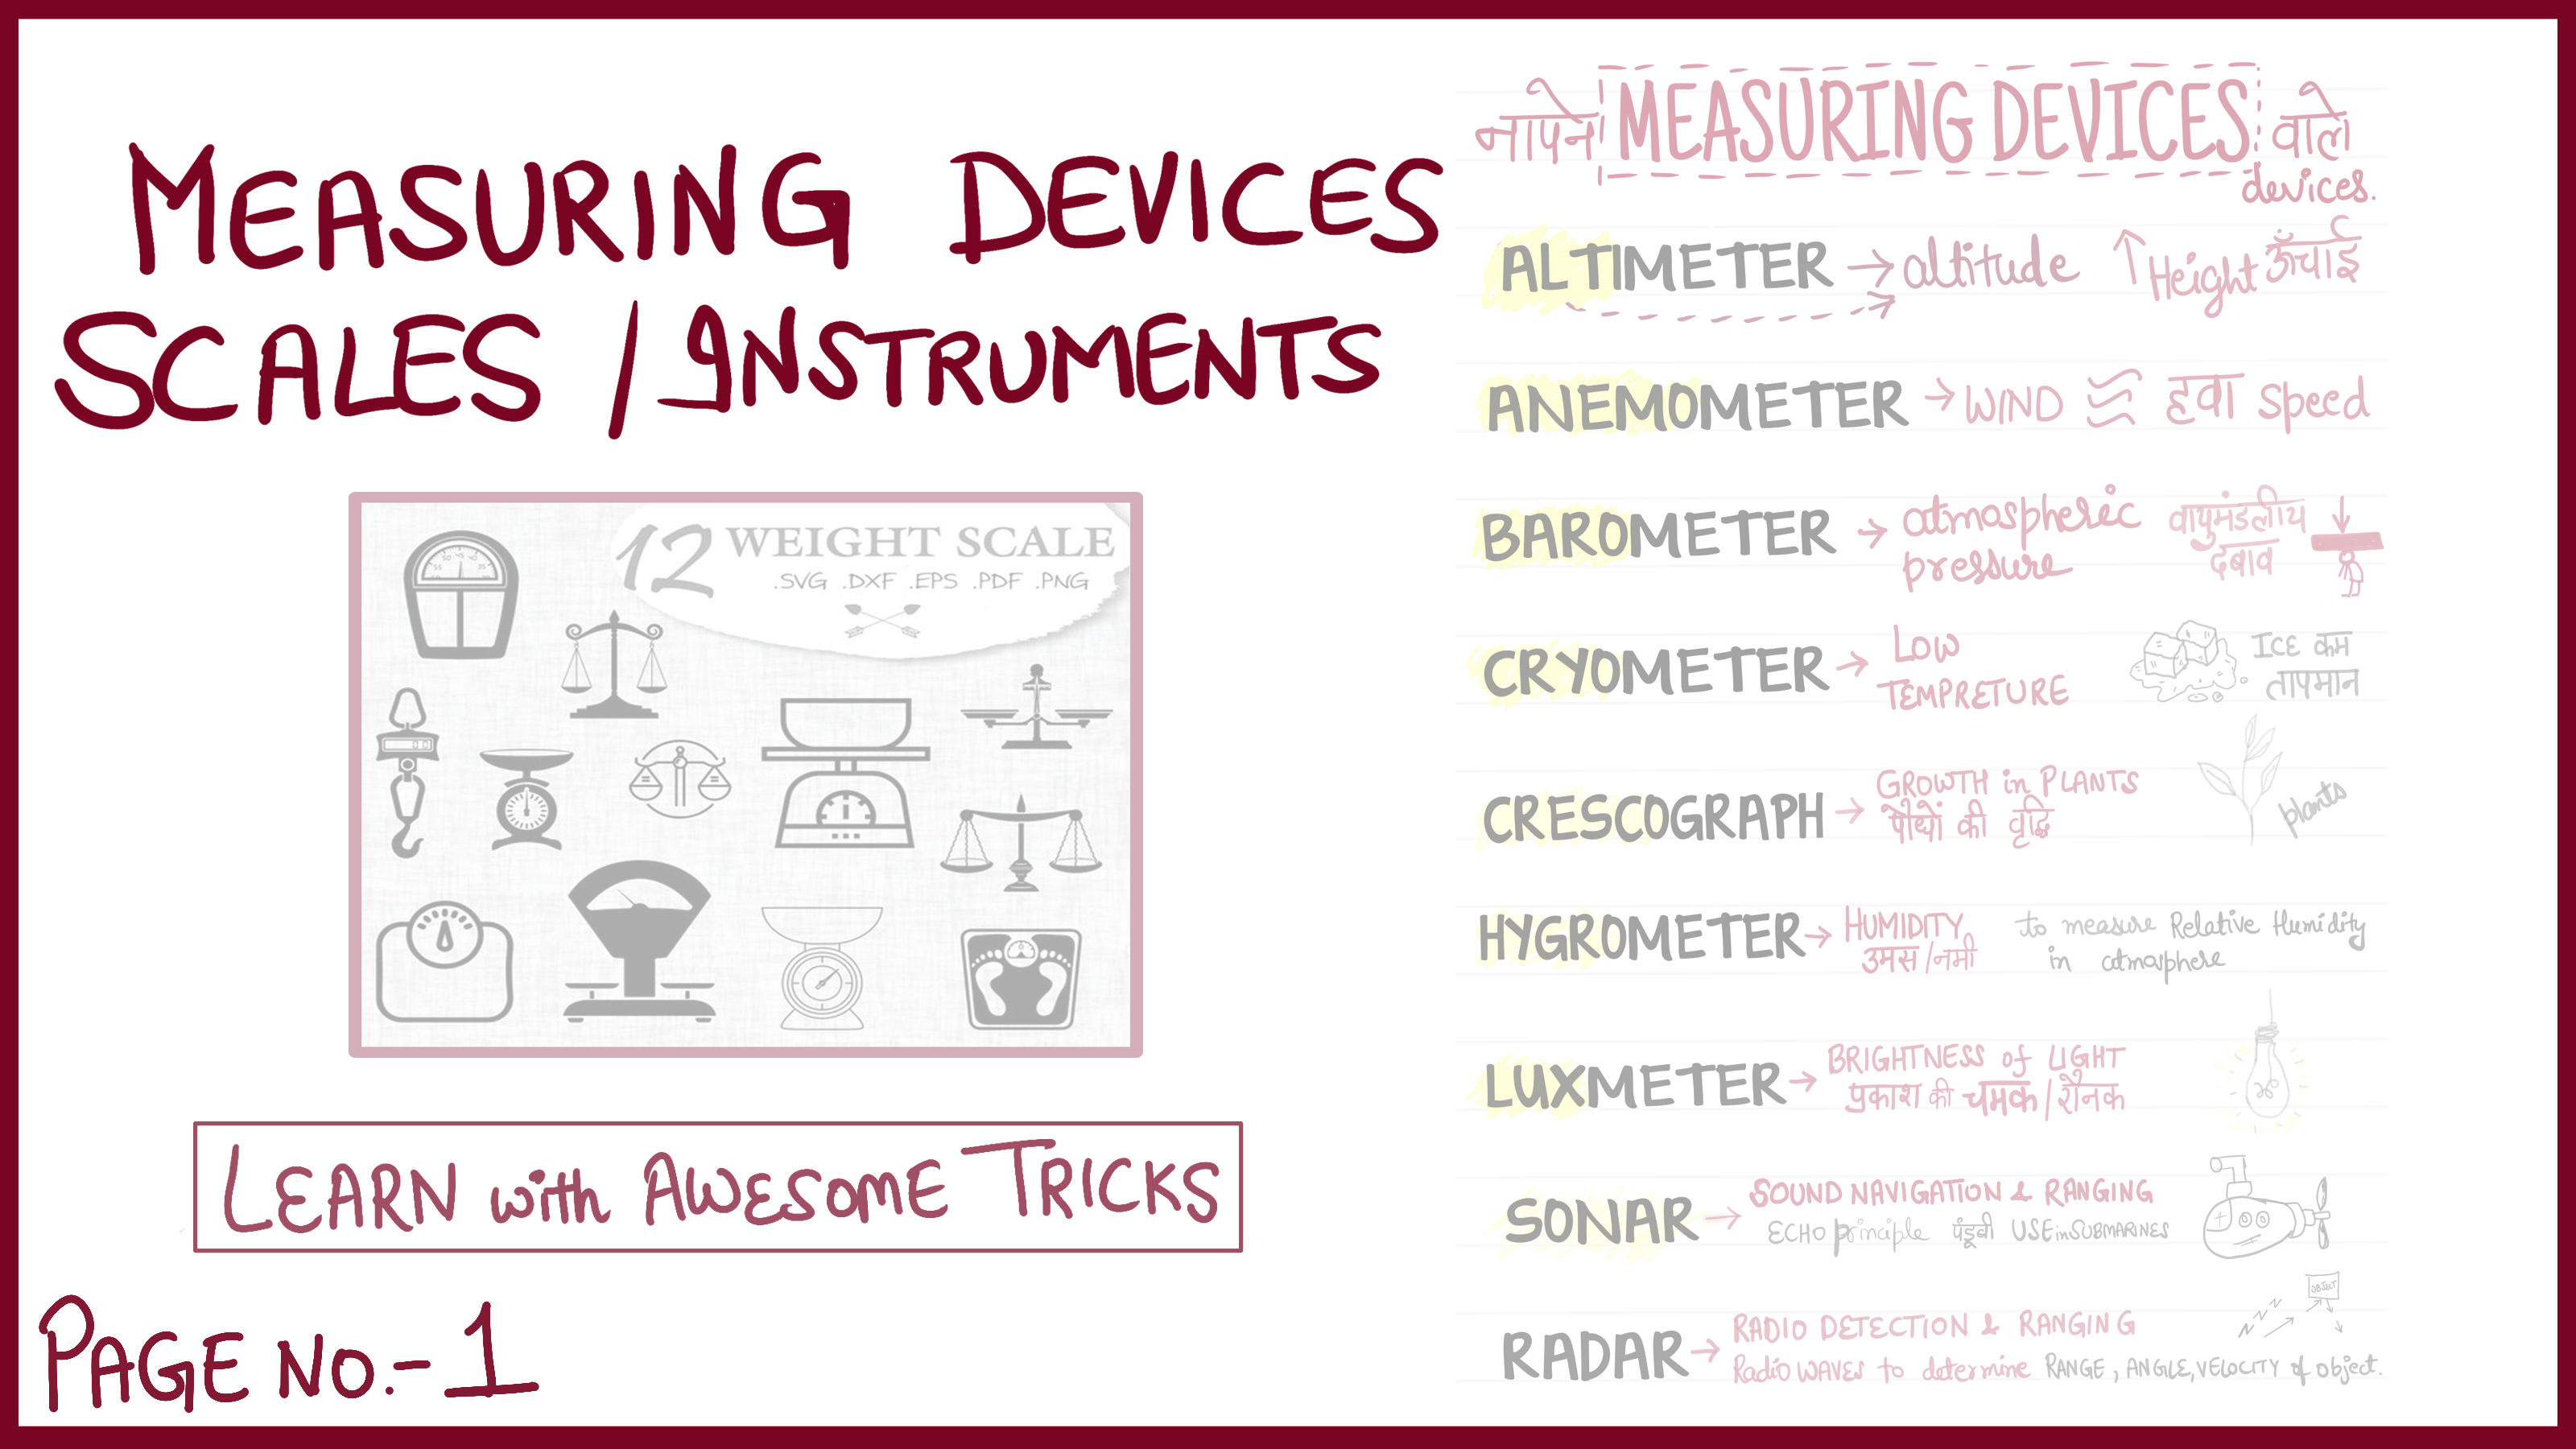 MEASURING DEVICES
SCALES / INSTRUMENTS
12 WEIGHT SCALE
.SVG .DXF .EPS .PDF .PNG
LEARN with AWESOME TRICKS
PAGE NO.-1
नापने MEASURING DEVICES वाले
devices.
ALTIMETER → altitude ↑ Height ऊँचाई
ANEMOMETER → WIND हवा speed
BAROMETER → atmospheric pressure वायुमंडलीय दबाव
CRYOMETER → LOW TEMPRETURE ICE कम तापमान
CRESCOGRAPH → GROWTH in PLANTS
पौधों की वृद्धि
plants
HYGROMETER → HUMIDITY to measure Relative Humidity
उमस/नमी in atmosphere
LUXMETER → BRIGHTNESS of LIGHT
प्रकाश की चमक/रौनक
SONAR → SOUND NAVIGATION & RANGING
ECHO principle पंडूबी USE in SUBMARINES
OBJECT
RADAR → RADIO DETECTION & RANGING
Radio WAVES to determine RANGE, ANGLE, VELOCITY of object.